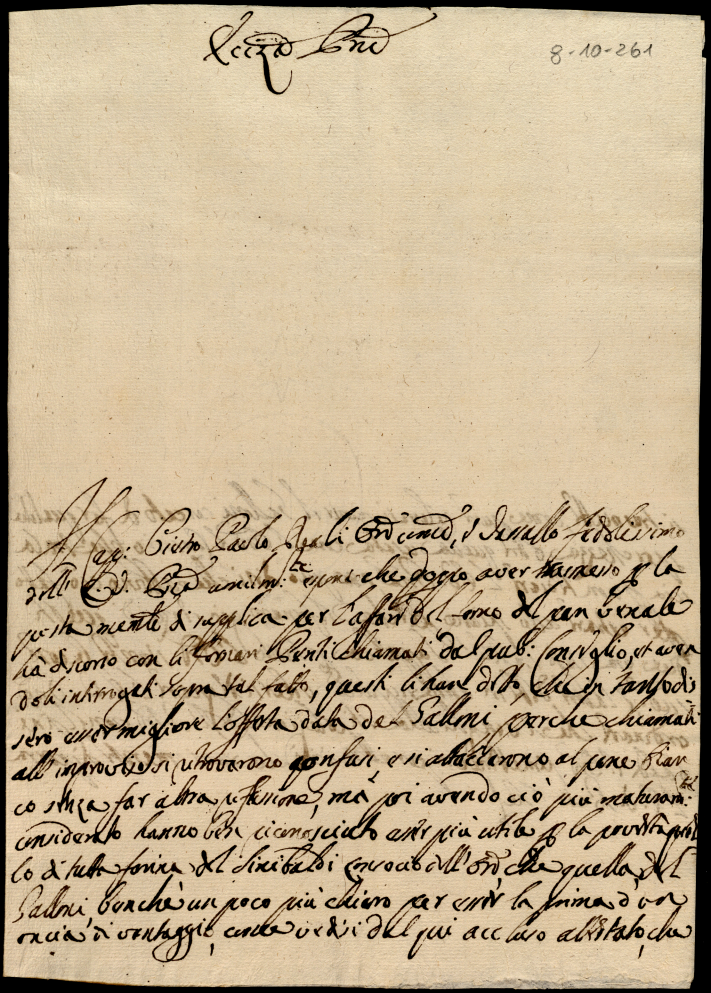 Ecc.za Pnd
8-10-261
Mag: Pietro Paolo Reali Ore umo, e Vassallo fedelissimo
dell' E. V. umilm:te espone che doppo aver trasmesso p la
posta mente di supplica per l'affare del forno del pan venale
ha discorso con li fornari Periti chiamati dal pub: Consiglio, et aven
doli interrogati sopra tal fatto, questi li han detto, che in tanto dis
sero esser migliore l'offerta data del Galloni perche chiamati
all'improviso si ritrovorono confusi, e si attaccorono al pane bian
co senza far altra riflessione, mà poi avendo ciò più maturam:te
considerato hanno ben riconosciuto esser più utile p la povertà quel
lo di tutta farina del Sinibaldi consocio dell'Ore che quella del
Galloni, benche un poco più chiaro per esser la prima d'un
oncia di vantaggio, come vedesi dal qui accluso attestato, che